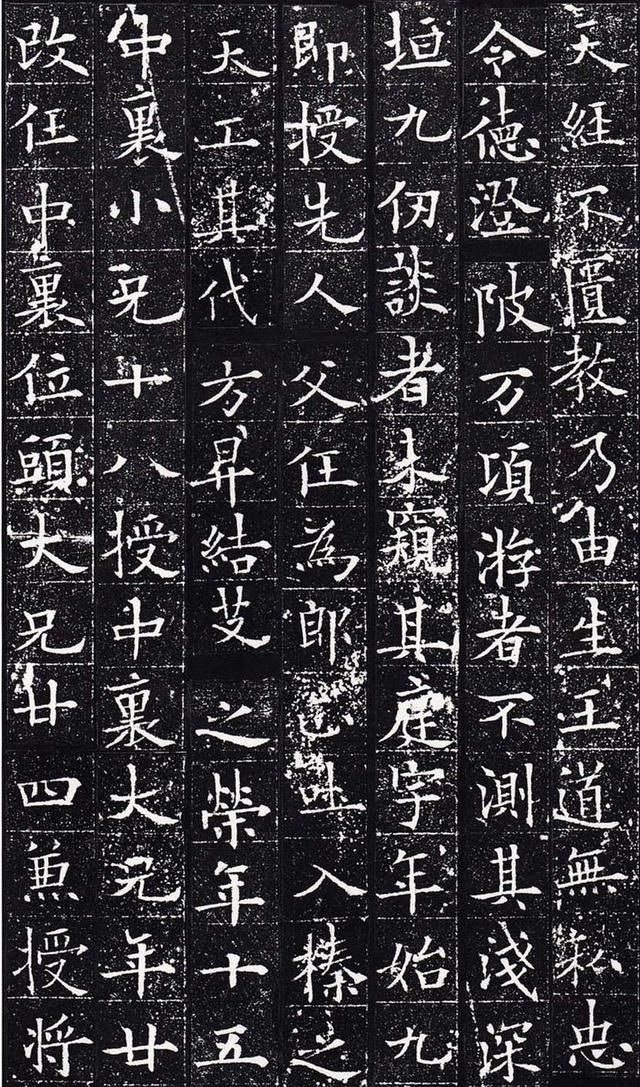 天經不匱教乃由生王道無私忠
令德澄陂万頃游者不測其淺深
垣九仞談者未窺其庭宇年始九
即授先人父任為郎正吐入榛之
天工其代方昇結艾之榮年十五
中裏小兄十八授中裏大兄年廿
改任中裏位頭大兄廿四兼授將